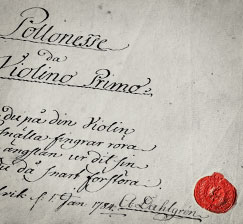 Pollonesse
da
Violino Primo
du på din Violin
snälla fingrar röra
ängslan ur ditt sin
du då snart förstöra
d. 1. Jan 17
C Dahlgren